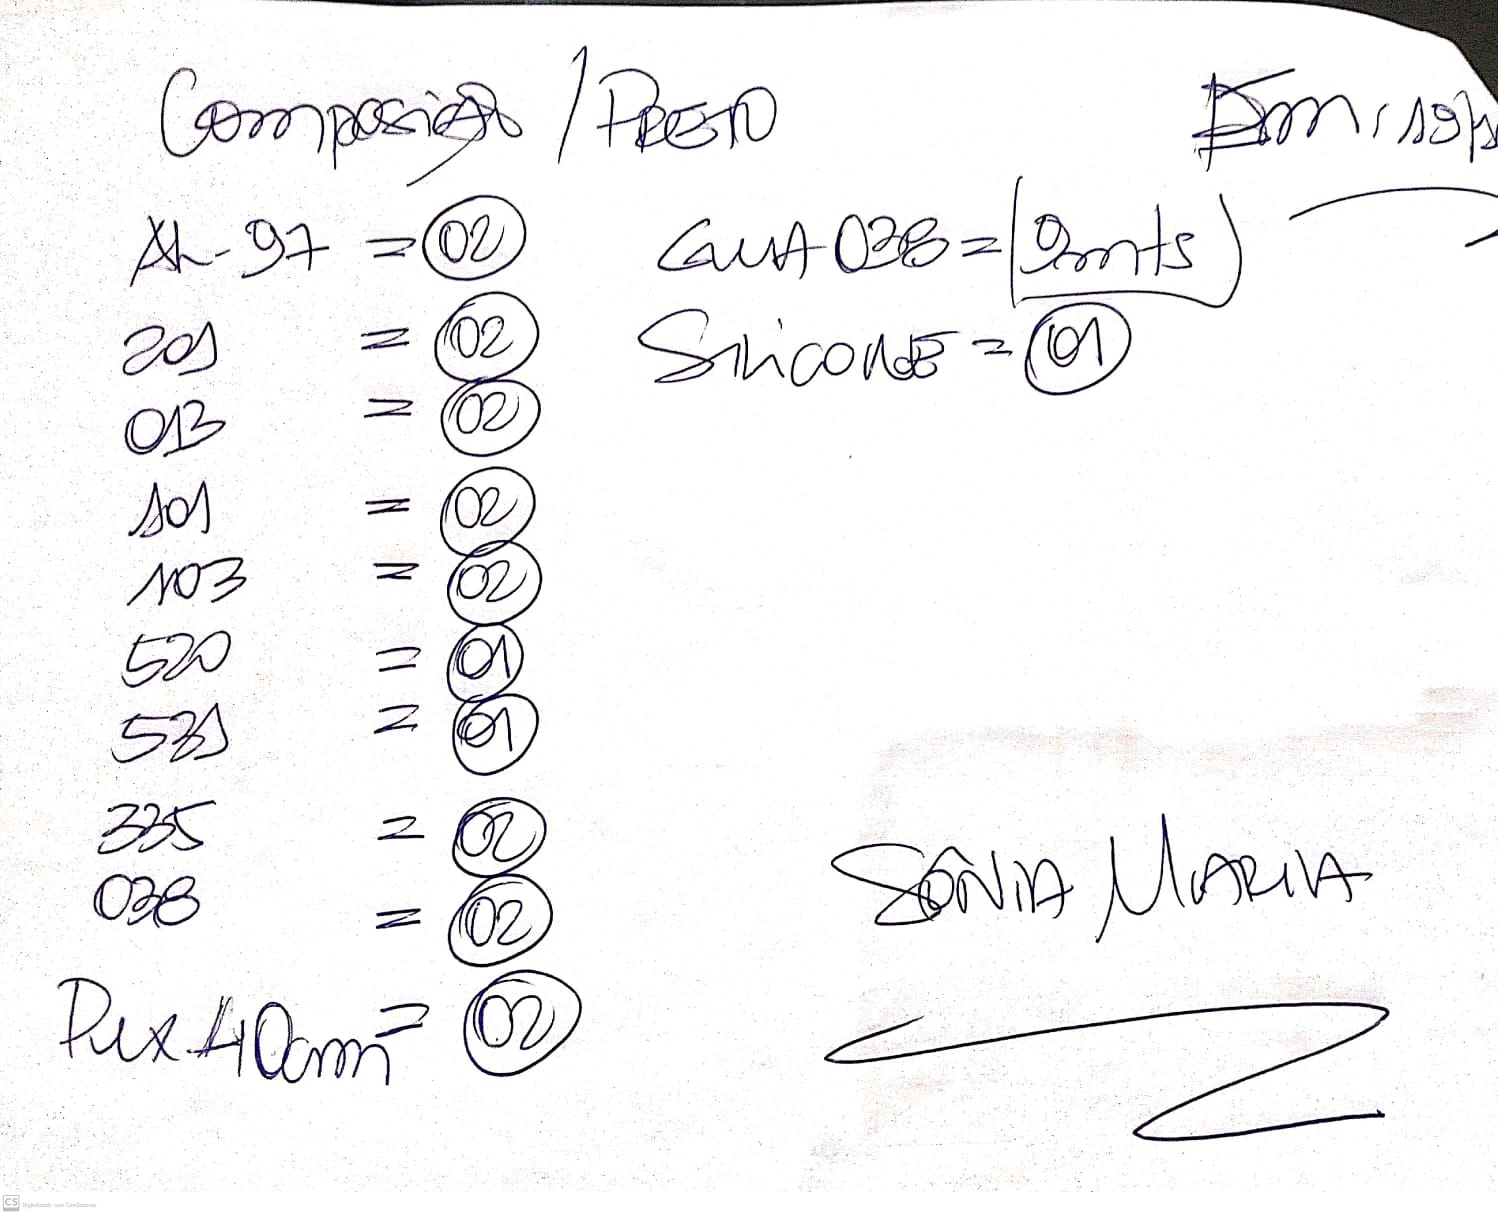 Composição / PRETO
AL-97 = 02
201 = 02
013 = 02
101 = 02
103 = 02
520 = 01
531 = 01
335 = 02
038 = 02
Pux 40cm = 02
038 = 9mts
SiliCONE = 01
SÔNIA MARIA
CS Digitalizado com CamScanner